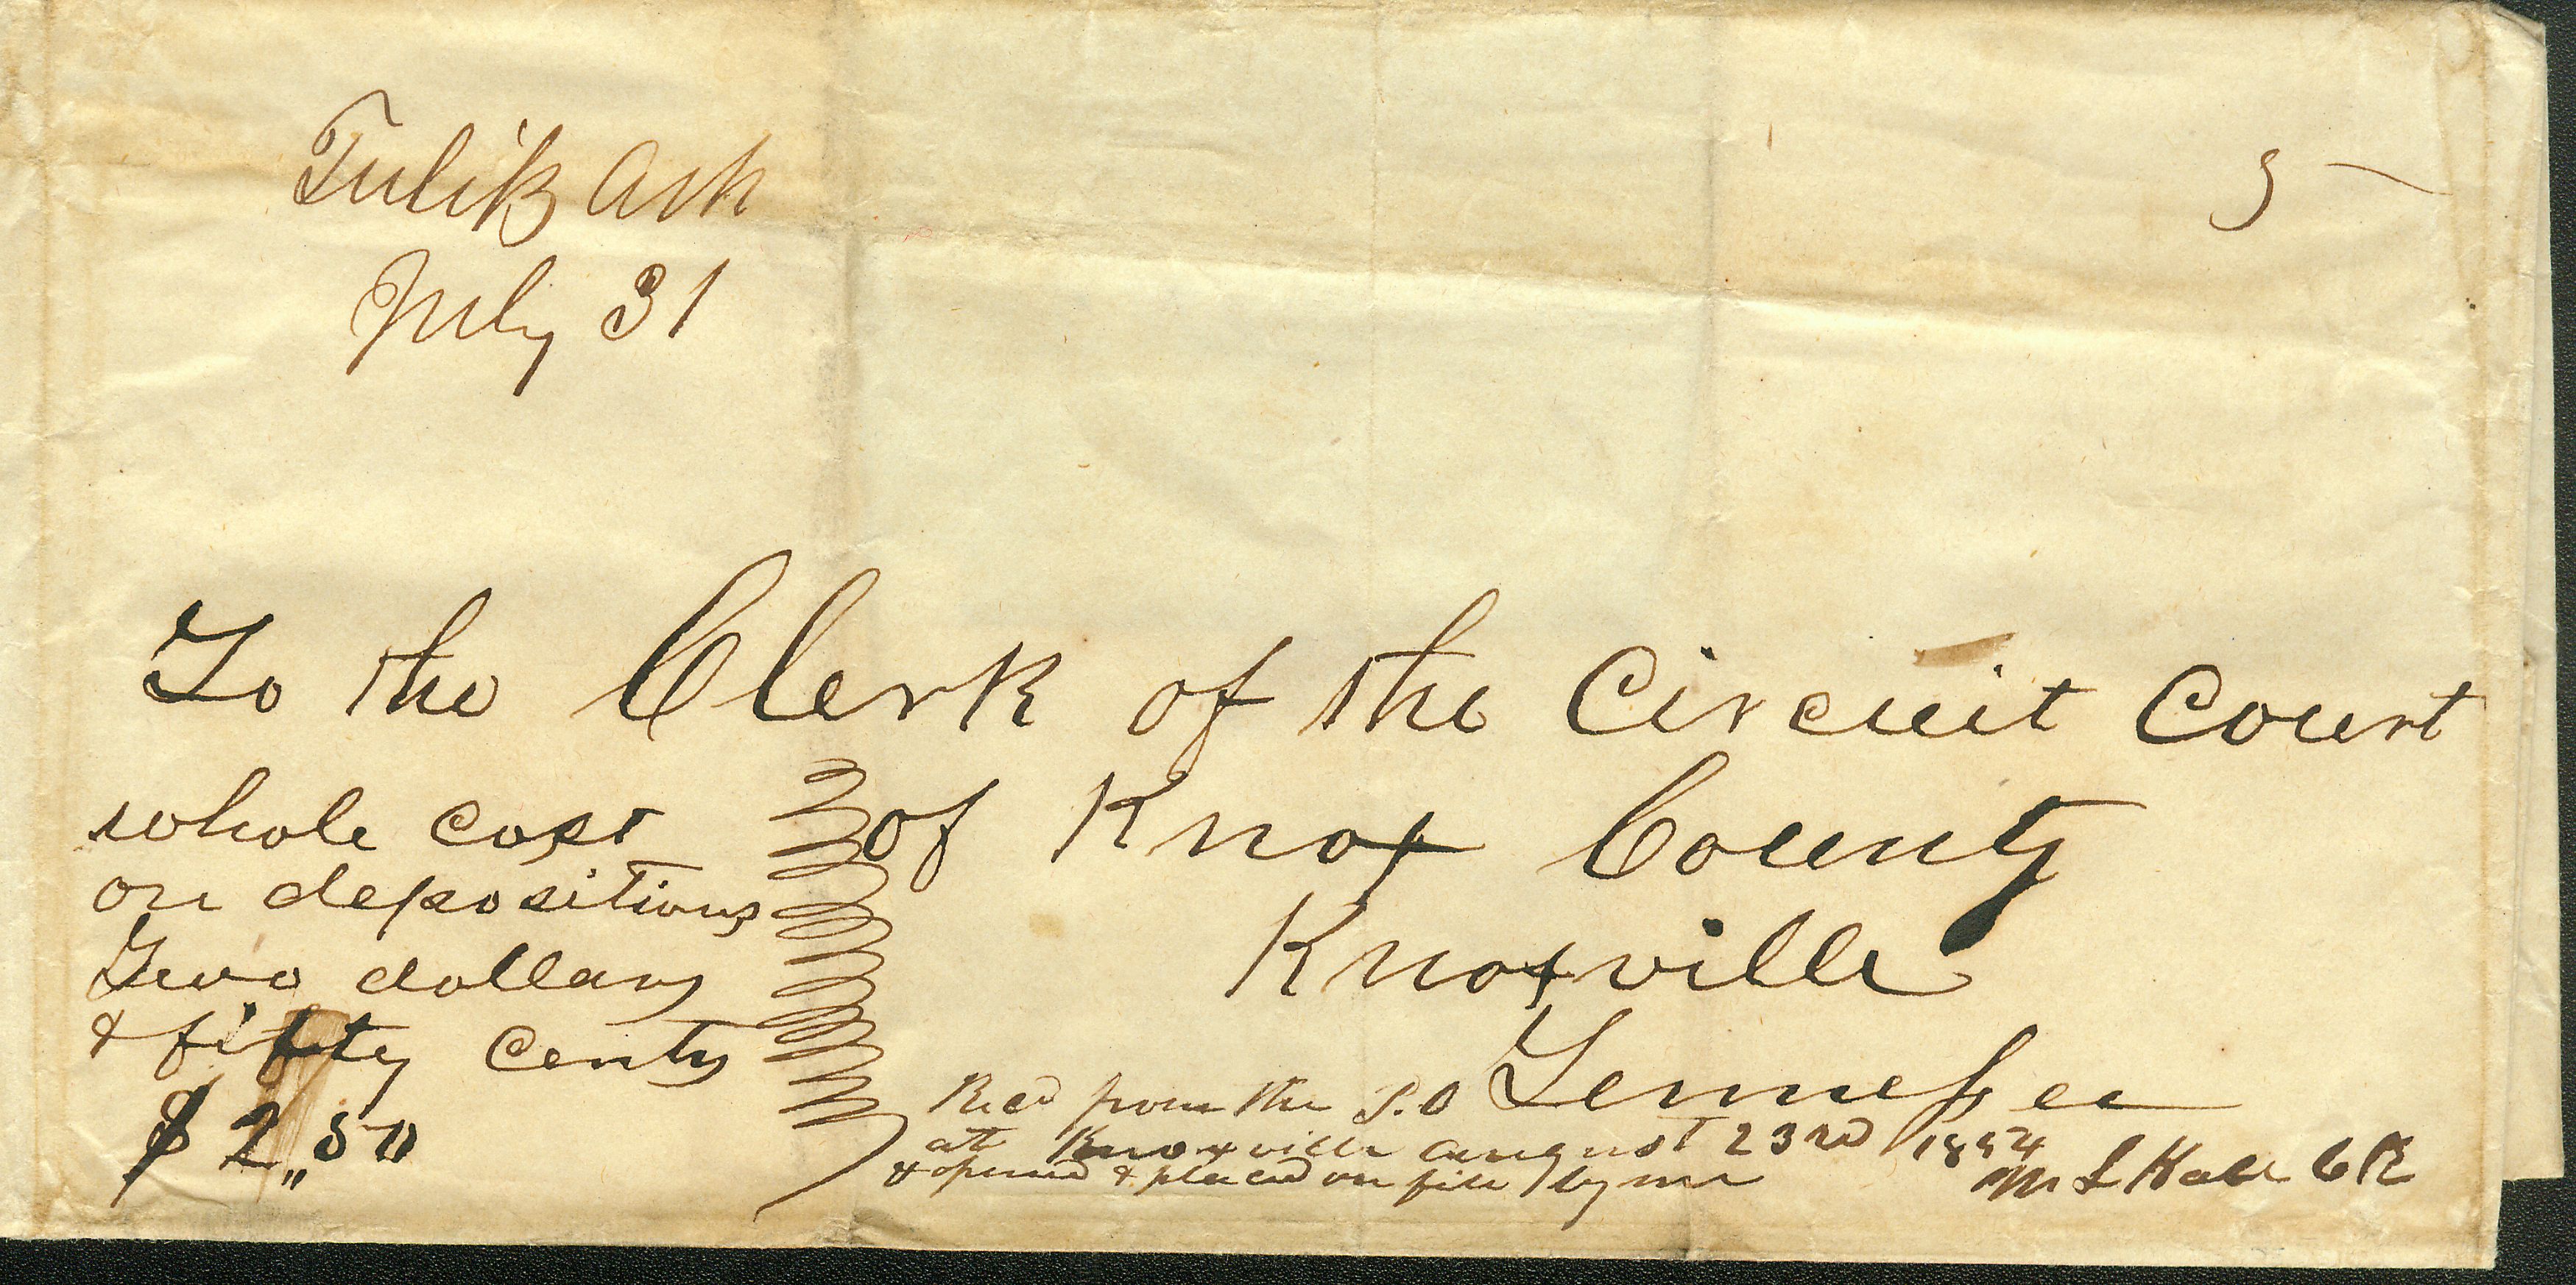 Tulip Ark
July 31
5
To the Clerk of the Circuit Court
of Knox County
Knoxville
Tennessee
whole cost
on depositions
Two dollars
& fifty cents
$2,,50
Recd from the P.O
at Knoxville August 23rd 1854
& opened & placed on file by me
M L Hall Clk